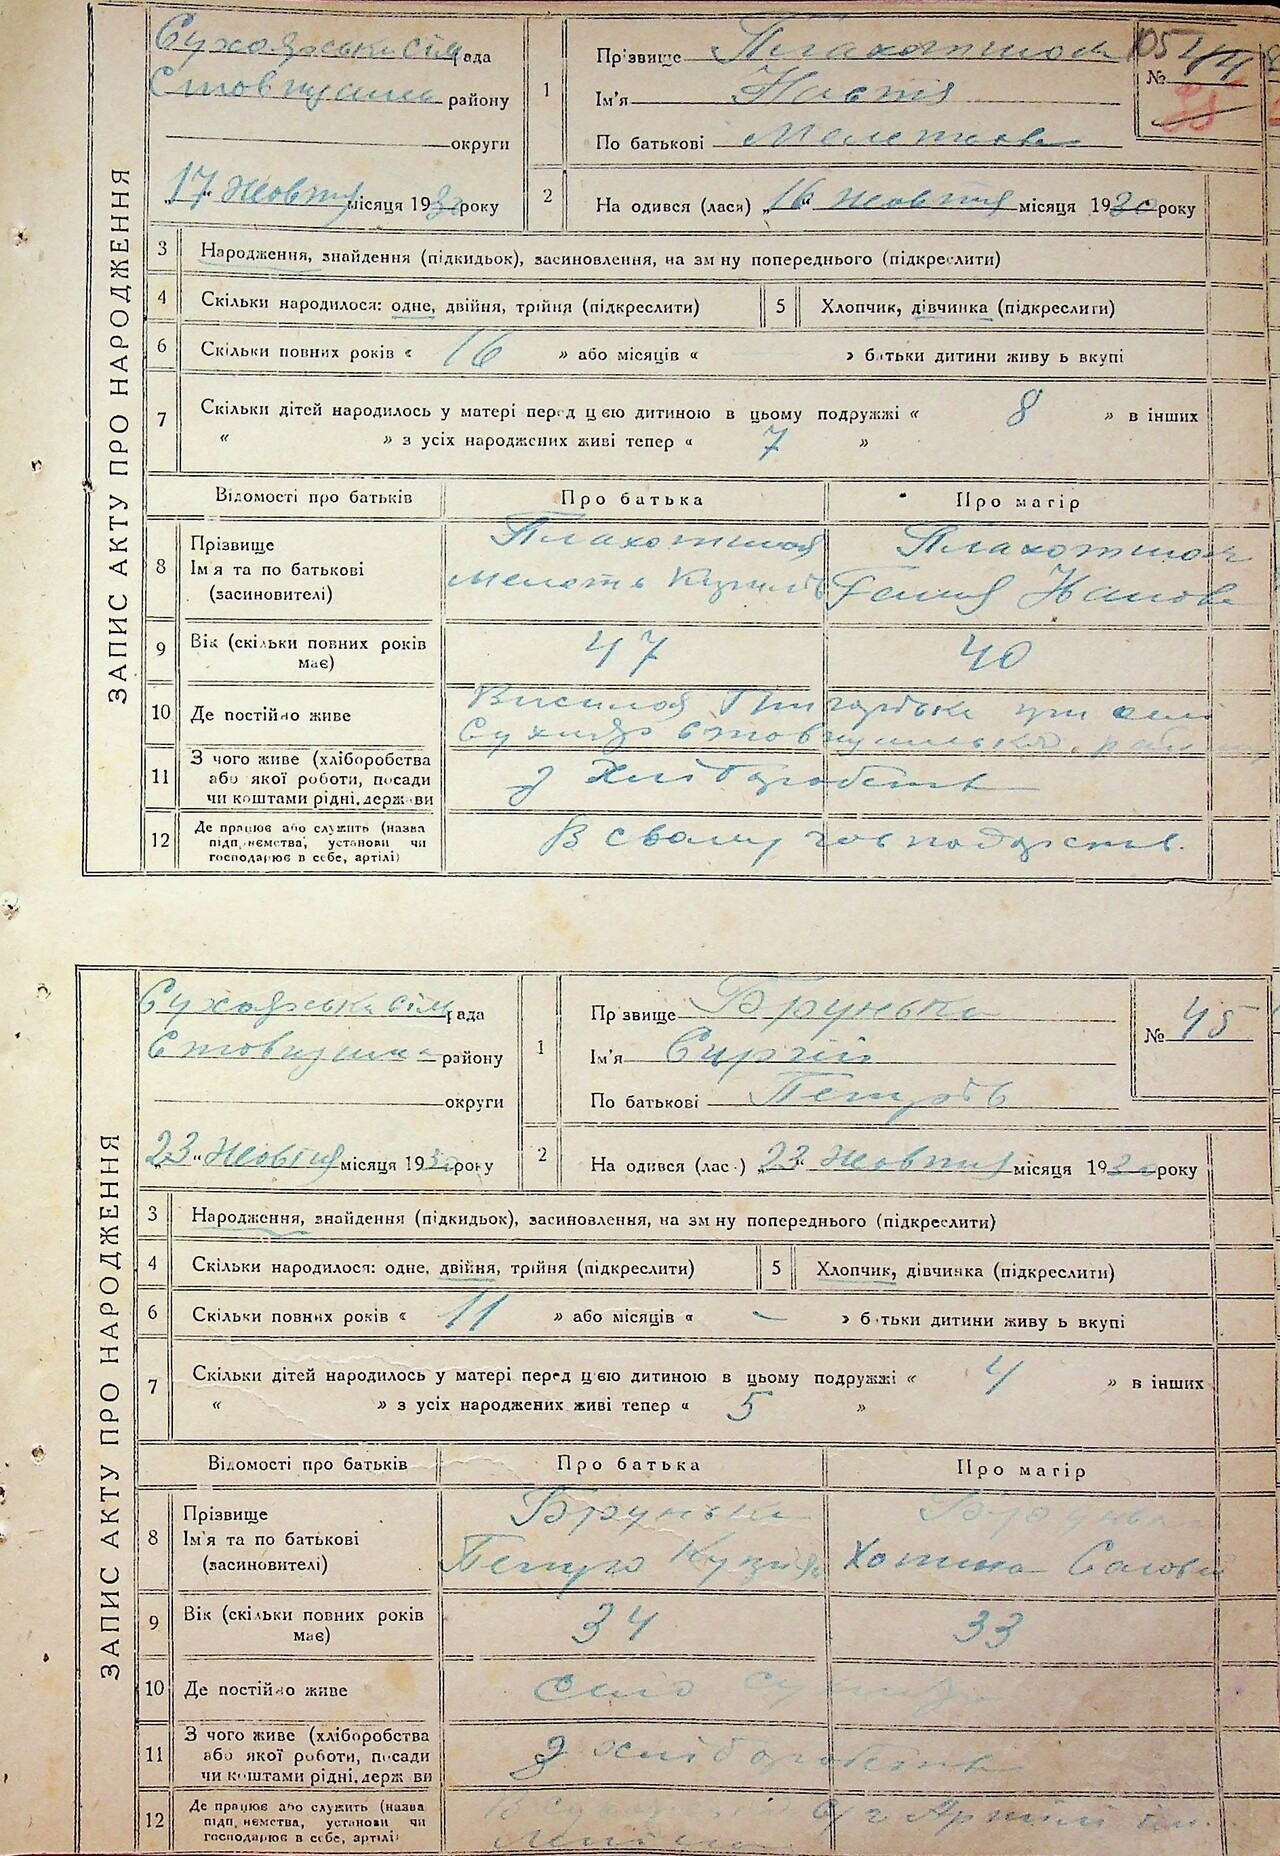 ЗАПИС АКТУ ПРО НАРОДЖЕННЯ
Сухоярська сіль рада
району
округи
„17“ Жовтня місяця 1930 року
1
Прізвище
Ім'я Настя
По батькові
№ 44
105
2
На одився (лася) „16“ Жовтня місяця 1930 року
3 Народження, знайдення (підкидьок), засиновлення, на зм ну попереднього (підкреслити)
4 Скільки народилося: одне, двійня, трійня (підкреслити) 5 Хлопчик, дівчинка (підкреслити)
6 Скільки повних років « 16 » або місяців « » батьки дитини живу ь вкупі
7 Скільки дітей народилось у матері перед цією дитиною в цьому подружжі « 8 » в інших
« » з усіх народжених живі тепер « 7 »
Відомості про батьків Про батька Про матір
8 Прізвище
Ім'я та по батькові
(засиновителі)
9 Вік (скільки повних років має) 47 40
10 Де постійно живе
при селі
11 З чого живе (хліборобства
або якої роботи, посади
чи коштами рідні, держ ви
З Хліборобства
12 Де працює або служить (назва
підп ємства, установи чи
господарює в себе, артілі)
В свому господарстві.
ЗАПИС АКТУ ПРО НАРОДЖЕННЯ
Сухоярська сіль рада
району
округи
„23“ Жовтня місяця 1930 року
1
Прізвище Брунька
Ім'я Сиргій
По батькові Петров
№ 45
2
На одився (лас ) „23“ Жовтня місяця 1930 року
3 Народження, знайдення (підкидьок), засиновлення, на зм ну попереднього (підкреслити)
4 Скільки народилося: одне, двійня, трійня (підкреслити) 5 Хлопчик, дівчинка (підкреслити)
6 Скільки повних років « 11 » або місяців « – » б тьки дитини живу ь вкупі
7 Скільки дітей народилось у матері перед цією дитиною в цьому подружжі « 4 » в інших
« » з усіх народжених живі тепер « 5 »
Відомості про батьків Про батька Про матір
8 Прізвище
Ім'я та по батькові
(засиновителі)
Брунька Брунька
Петро
9 Вік (скільки повних років має) 34 33
10 Де постійно живе село
11 З чого живе (хліборобства
або якої роботи, посади
чи коштами рідні, держ ви
З хліборобства
12 Де працює або служить (назва
підп ємства, установи чи
господарює в себе, артілі)
с/г Артілі ім.
Леніна